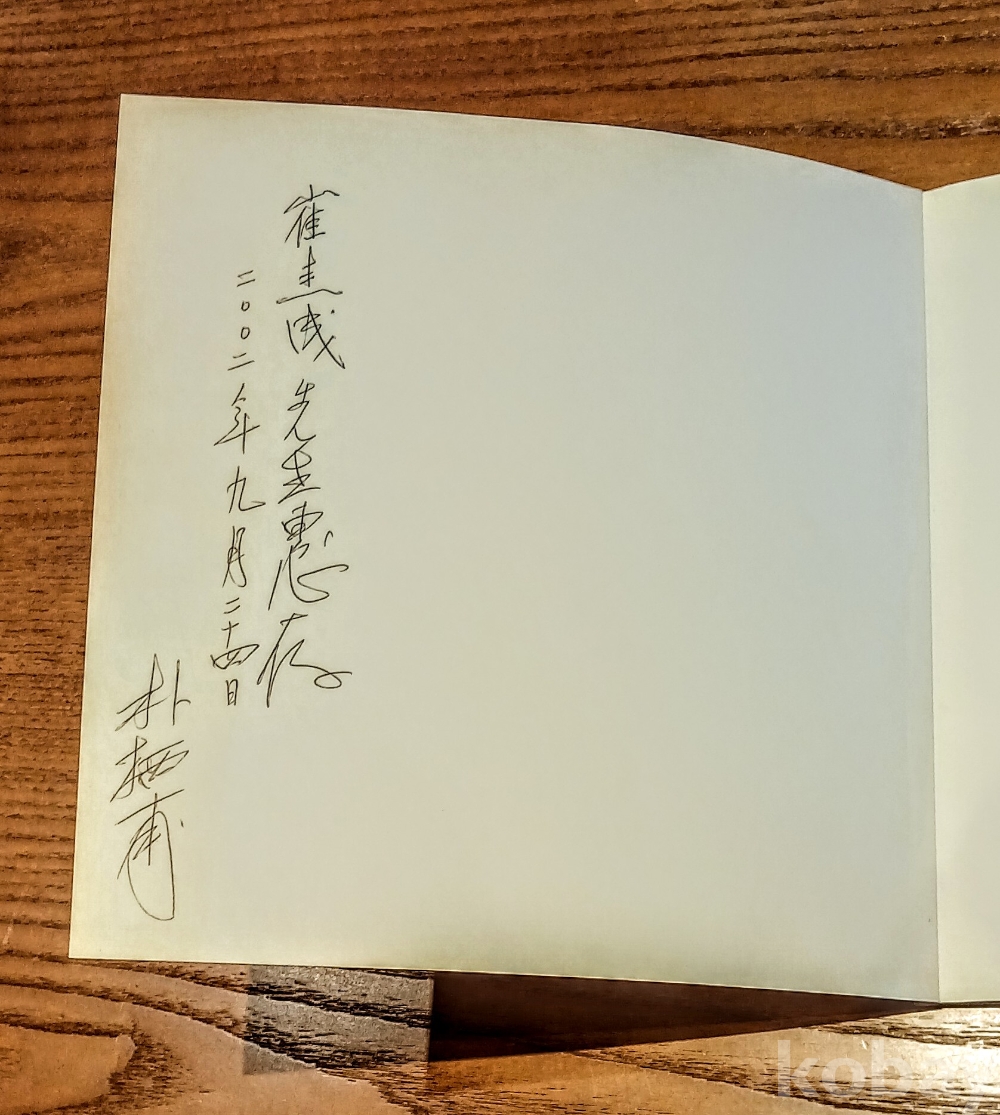 崔圭晟先生惠存
二〇〇二年九月二十四日
朴栖甫
kobay